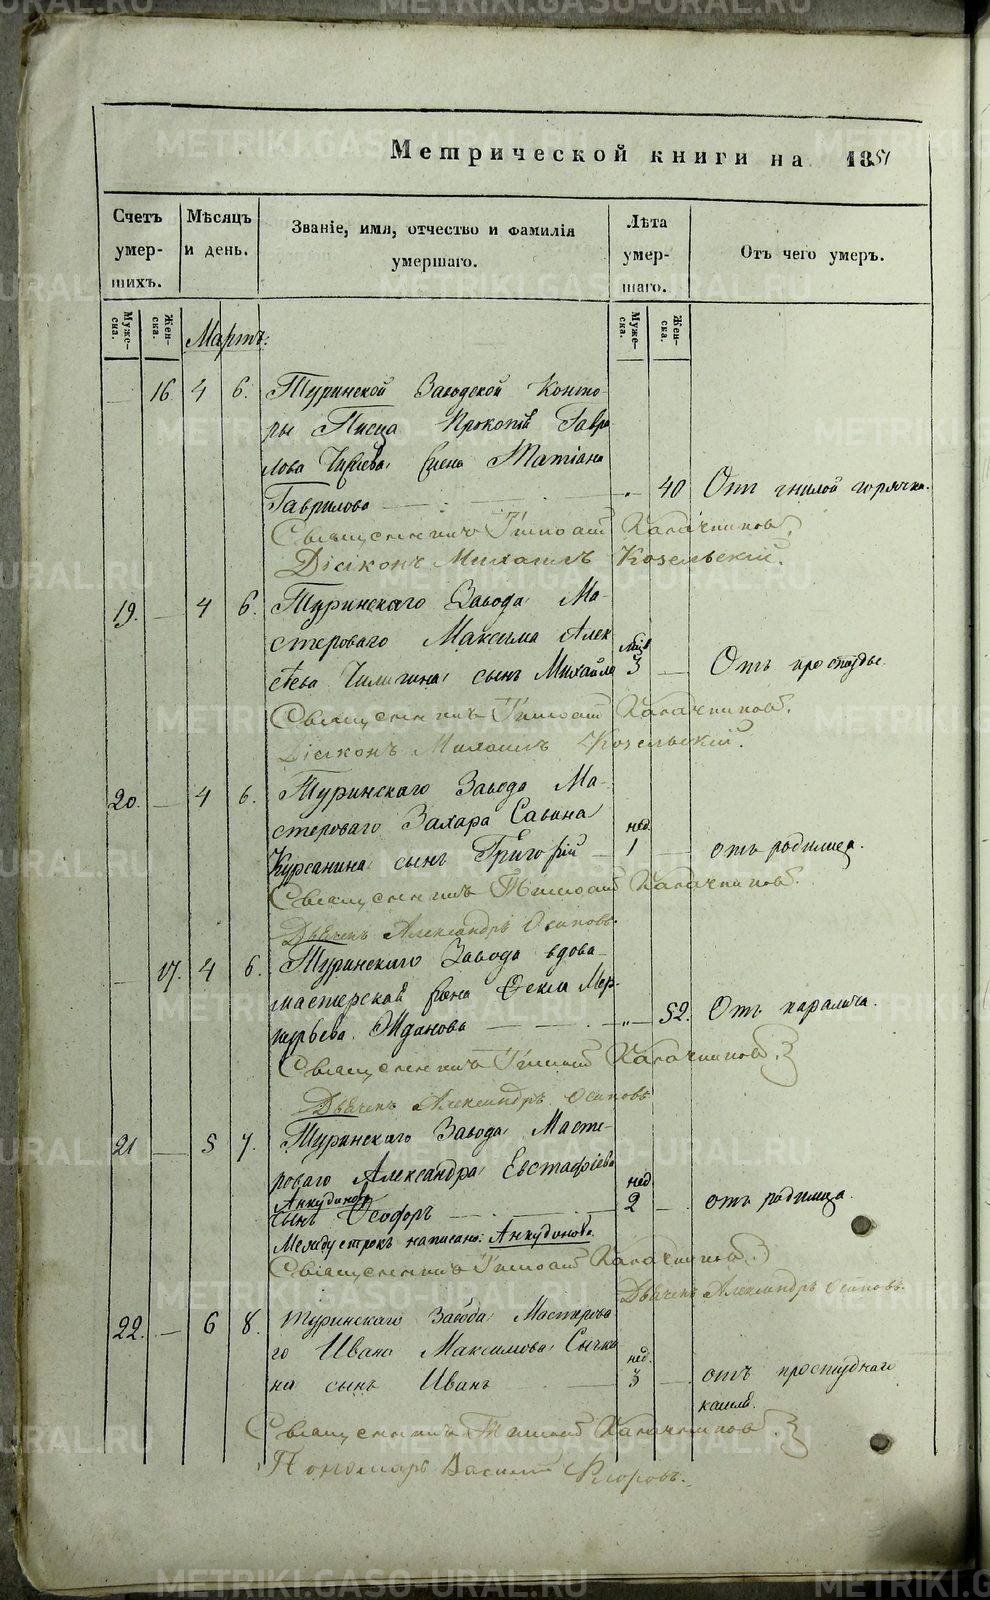 METRIKI.GASO-URAL.RU
Метрической книги на 1851
Счетъ умер-шихъ.
Мѣсяцъ и день.
Званіе, имя, отчество и фамилія умершаго.
Лѣта умер-шаго.
Отъ чего умеръ.
Муже-ска.
Жен-ска.
Мартъ.
Муже-ска.
Жен-ска.
16 4 6. Туринской Заводской Конто-
ры Писца Прокопія Гаври
лова жена Татіана
Гаврилова 40 Отъ гнилой горячки.
Священникъ Тимофей Калачниковъ
Діаконъ Михаилъ Козельскій.
19. 4 6. Туринскаго Завода Ма-
стероваго Максима Алек
сѣева Чилигина сынъ Михайло 3 Отъ простуды.
Священникъ Тимофей Калачниковъ.
Діаконъ Михаилъ Козельскій.
20. 4 6. Туринскаго Завода Ма-
стероваго Захара Савина
нед.
Курсанина сынъ Григорій 1 отъ родимца.
Священникъ Тимофей Калачниковъ.
Дьячекъ Александръ Осиповъ.
17. 4 6. Туринскаго Завода вдова
мастерская жена Фекла Мер-
курьева Жданова 52. Отъ паралича.
Священникъ Тимофей Калачниковъ.
Дьячекъ Александръ Осиповъ
21 5 7. Туринскаго Завода Масте-
роваго Александра Евстафіева
Анкудинова нед
сынъ Ѳеодоръ 2 отъ родимца.
Между строкъ написано: Анкудинова.
Священникъ Тимофей Калачниковъ.
Дьячекъ Александръ Осиповъ.
22. 6 8. Туринскаго Завода Мастерова
го Ивана Максимова Сычки
нед.
на сынъ Иванъ 3 отъ простуднаго
кашля.
Священникъ Тимофей Калачниковъ
Пономарь Василій Флоровъ.